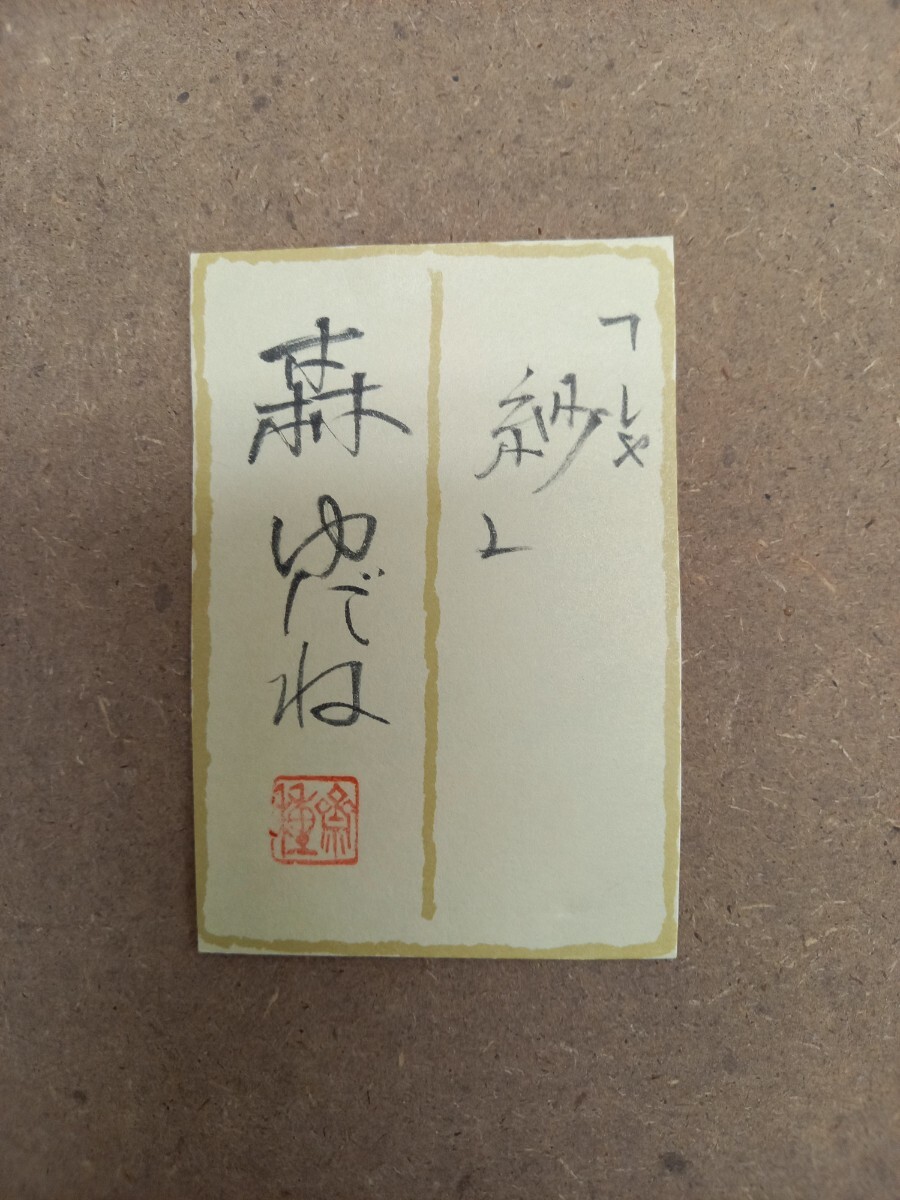 「紗」
しゃ
森 ゆだね